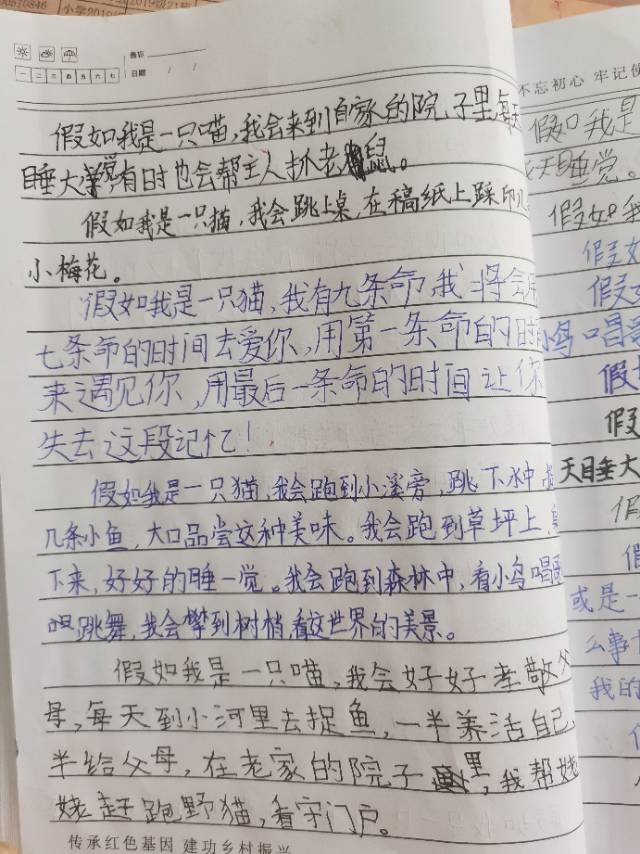 备忘
日期 / /
一二三四五六七
假如我是一只喵,我会来到自家的院子里,每天
睡大觉,有时也会帮主人抓老鼠。
假如我是一只猫,我会跳上桌,在稿纸上踩印几
小梅花。
假如我是一只猫,我有九条命,我将会用
七条命的时间去爱你,用第一条命的时
来遇见你,用最后一条命的时间让你
失去这段记忆!
假如我是一只猫,我会跑到小溪旁,跳下水中
几条小鱼,大口品尝这种美味。我会跑到草坪上,
下来,好好的睡一觉。我会跑到森林中,看小鸟唱歌
跳舞,我会攀到树梢,看这世界的美景。
假如我是一只喵,我会好好孝敬父
母,每天到小河里去捉鱼,一半养活自己,
半给父母,在老家的院子里,我帮姥
姥赶跑野猫,看守门户。
传承红色基因 建功乡村振兴
不忘初心 牢记使
假如我是
天睡觉。
假如我
假如
假
小鸟唱歌
假
假
天睡大
假
假
或是一
么事
我的